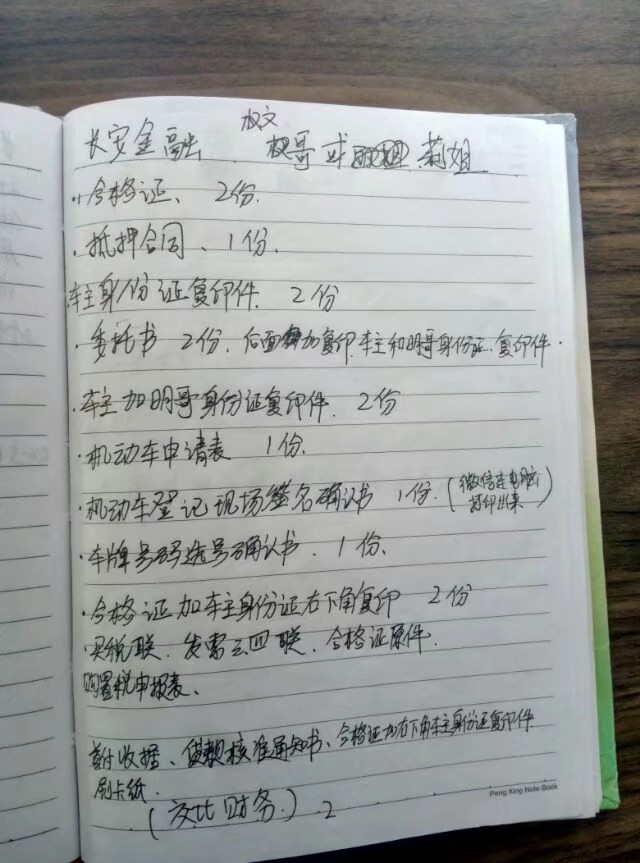 权文
长安金融 权哥或 莉姐
·合格证、2份.
·抵押合同、1份.
车主身份证复印件. 2份
·委托书 2份. 后面加复印.车主和明哥身份证.复印件.
·车主加明哥身份证复印件. 2份
·机动车申请表 1份.
·机动车登记现场签名确认书 1份.(微信在电脑
打印出来)
·车牌号码选号确认书. 1份.
·合格证加车主身份证右下角复印 2份
·买税联.发票三四联.合格证原件.
购置税申报表、
首付收据、贷款核准通知书、合格证加右下角车主身份证复印件
刷卡纸.
(交比财务.) 2
Peng Xing Note Book